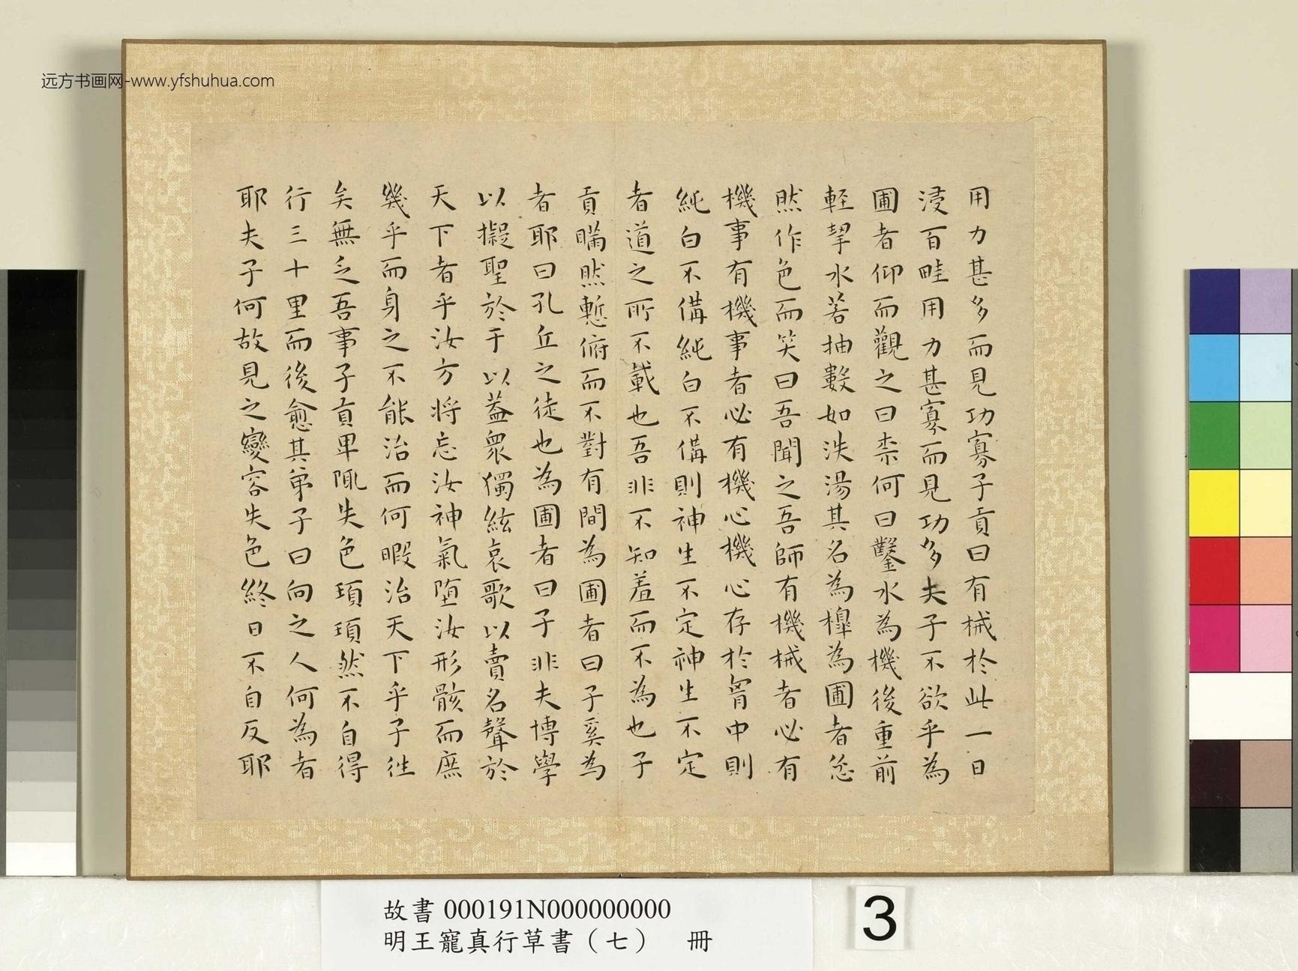 远方书画网-www.yfshuhua.com
用力甚多而見功寡子貢曰有械於此一日
浸百畦用力甚寡而見功多夫子不欲乎為
圃者仰而觀之曰柰何曰鑿水為機後重前
輕挈水若抽數如泆湯其名為橰為圃者忿
然作色而笑曰吾聞之吾師有機械者必有
機事有機事者必有機心機心存於胷中則
純白不備純白不備則神生不定神生不定
者道之所不載也吾非不知羞而不為也子
貢瞞然慙俯而不對有間為圃者曰子奚為
者耶曰孔丘之徒也為圃者曰子非夫博學
以擬聖於于以蓋衆獨絃哀歌以賣名聲於
天下者乎汝方将忘汝神氣堕汝形骸而庶
幾乎而身之不能治而何暇治天下乎子往
矣無乏吾事子貢卑陬失色頊頊然不自得
行三十里而後愈其弟子曰向之人何為者
耶夫子何故見之變容失色終日不自反耶
故書 000191N000000000
明王寵真行草書（七） 冊
3